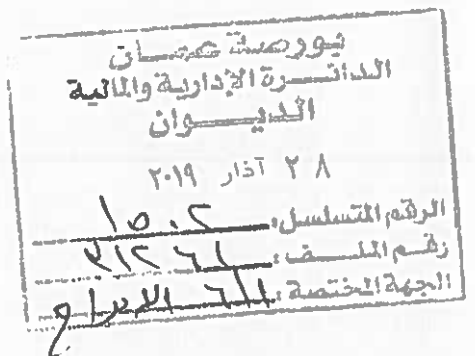 بورصة عمان
الدائرة الإدارية والمالية
الديوان
٢٨ آذار ٢٠١٩
الرقم المتسلسل: ١٥٠٢
رقم الملف:
الجهة المختصة: الإدراج